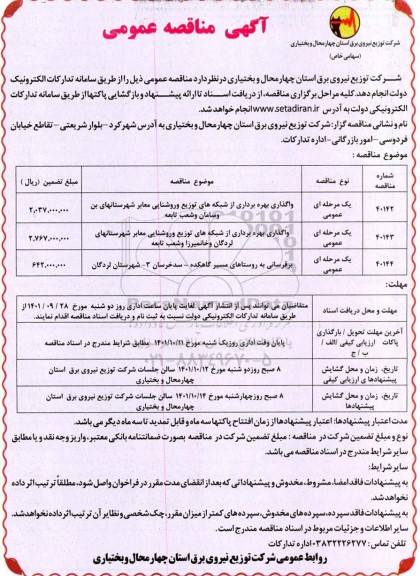 آگهی مناقصه عمومی
شرکت توزیع نیروی برق استان چهارمحال و بختیاری
(سهامی خاص)
شرکت توزیع نیروی برق استان چهارمحال و بختیاری در نظر دارد مناقصه عمومی ذیل را از طریق سامانه تدارکات الکترونیک
دولت انجام دهد. کلیه مراحل برگزاری مناقصه، از دریافت اسناد تا ارائه پیشنهاد و بازگشایی پاکتها از طریق سامانه تدارکات
الکترونیکی دولت به آدرس www.setadiran.ir انجام خواهد شد.
نام و نشانی مناقصه گزار: شرکت توزیع نیروی برق استان چهارمحال و بختیاری به آدرس شهرکرد - بلوار شریعتی - تقاطع خیابان
فردوسی - امور بازرگانی - اداره تدارکات.
موضوع مناقصه :
شماره مناقصه | نوع مناقصه | موضوع مناقصه | مبلغ تضمین (ریال)
۴۰۱۴۲ | یک مرحله ای عمومی | واگذاری بهره برداری از شبکه های توزیع وروشنایی معابر شهرستانهای بن وسامان وشعب تابعه | ۲,۰۳۷,۰۰۰,۰۰۰
۴۰۱۴۳ | یک مرحله ای عمومی | واگذاری بهره برداری از شبکه های توزیع وروشنایی معابر شهرستانهای لردگان وخانمیرزا وشعب تابعه | ۲,۷۶۷,۰۰۰,۰۰۰
۴۰۱۴۴ | یک مرحله ای عمومی | برقرسانی به روستاهای مسیر گاهکده - سدخرسان ۳ - شهرستان لردگان | ۶۴۲,۰۰۰,۰۰۰
مهلت:
مهلت و محل دریافت اسناد | متقاضیان می توانند پس از انتشار آگهی لغایت پایان ساعت اداری روز دو شنبه مورخ ۲۸ / ۰۹ / ۱۴۰۱ از طریق سامانه تدارکات الکترونیکی دولت نسبت به ثبت نام و دریافت اسناد مناقصه اقدام نمایند.
آخرین مهلت تحویل / بارگذاری پاکات ارزیابی کیفی / الف / ب / ج | پایان وقت اداری روزیک شنبه مورخ ۱۴۰۱/۱۰/۱۱ مطابق شرایط مندرج در اسناد مناقصه
تاریخ، زمان و محل گشایش پیشنهادهای ارزیابی کیفی | ۸ صبح روزدو شنبه مورخ ۱۴۰۱/۱۰/۱۲ سالن جلسات شرکت توزیع نیروی برق استان چهارمحال و بختیاری
تاریخ، زمان و محل گشایش پیشنهادها | ۸ صبح روزچهارشنبه مورخ ۱۴۰۱/۱۰/۱۴ سالن جلسات شرکت توزیع نیروی برق استان چهارمحال و بختیاری
مدت اعتبار پیشنهادها: اعتبار پیشنهادها از زمان افتتاح پاکتها سه ماه و قابل تمدید تا سه ماه دیگر می باشد.
نوع و مبلغ تضمین شرکت در مناقصه : مبلغ تضمین شرکت در مناقصه بصورت ضمانتنامه بانکی معتبر، واریز وجه نقد و یا مطابق
سایر شرایط مندرج در اسناد مناقصه می باشد.
سایر شرایط:
به پیشنهادات فاقد امضا، مشروط، مخدوش و پیشنهاداتی که بعد از انقضای مدت مقرر در فراخوان واصل شود، مطلقاً ترتیب اثر داده
نخواهد شد.
به پیشنهادات فاقد سپرده، سپرده های مخدوش، سپرده های کمتر از میزان مقرر، چک شخصی و نظایر آن ترتیب اثر داده نخواهد شد.
سایر اطلاعات و جزئیات مربوط در اسناد مناقصه مندرج است.
تلفن تماس: ۰۳۸۳۲۲۲۶۲۷۷ اداره تدارکات
روابط عمومی شرکت توزیع نیروی برق استان چهارمحال و بختیاری
۰۲۱-۸۸۳۴۹۶۷۰-۵